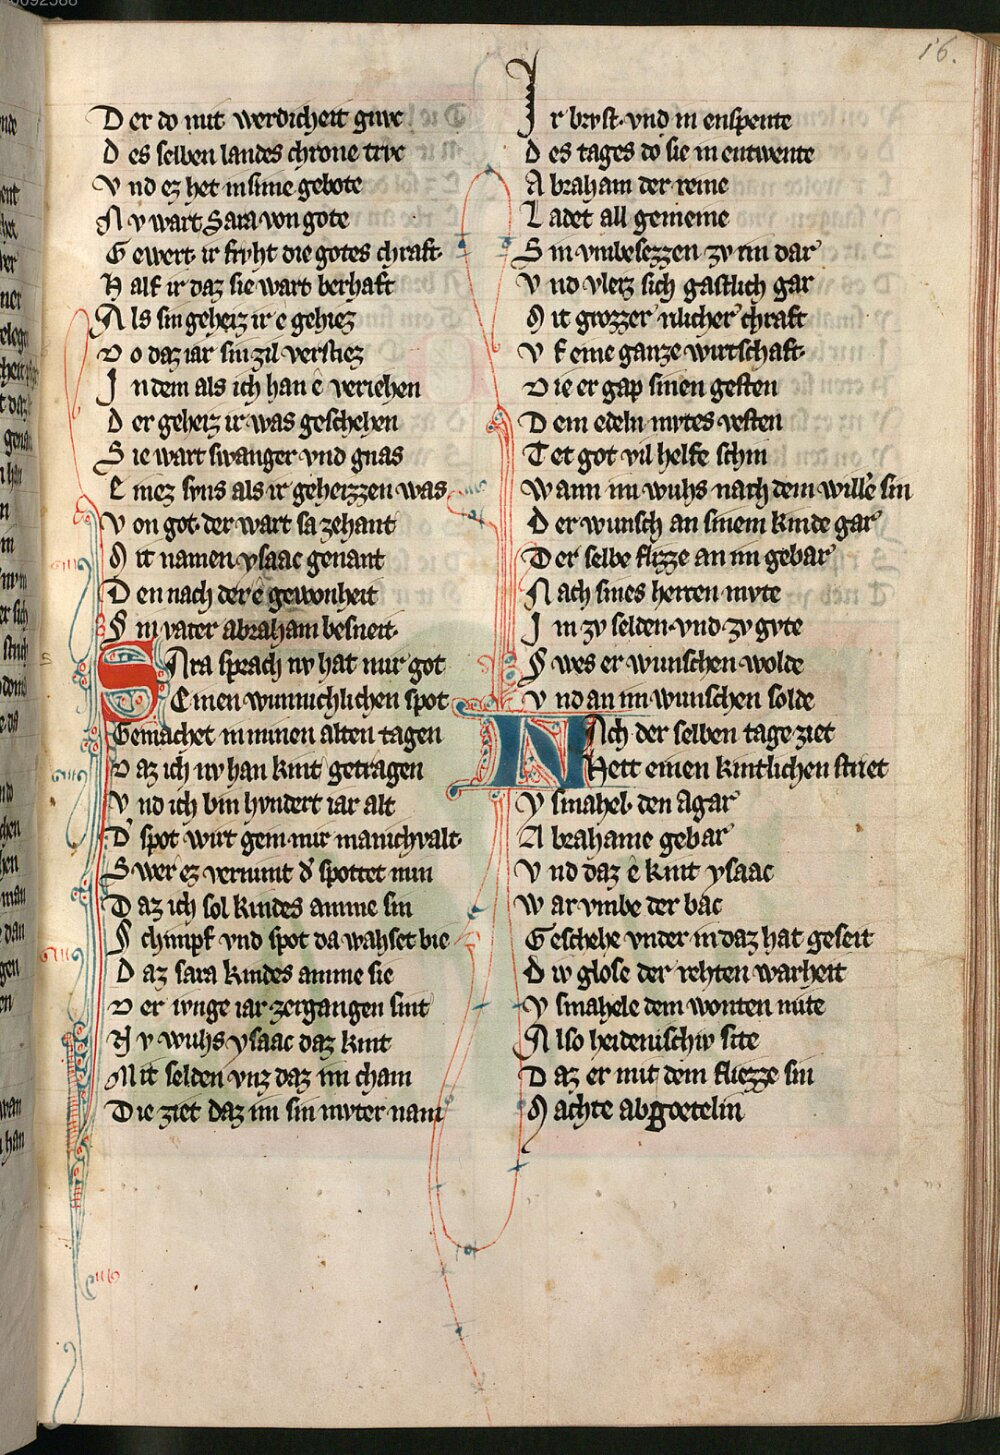 16.
Der do mit werdicheit gnvc
Des selben landes chrone trvc
Vnd ez het in sime gebote
Nv wart Sara von gote
Gewert ir frvht die gotes chraft·
Half ir daz sie wart berhaft
Als sin geheiz ir e gehiez
Do daz iar sin zil verstiez
In dem als ich han e veriehen
Der geheiz ir was geschehen
Sie wart swanger vnd gnas
Einez svns als ir geheizzen was
Von got· der wart sa zehant
Mit namen ysaac genant
Den nach der e gewonheit
Sin vater abraham besneit·
Sara sprach nv hat mir got
Einen wunnichlichen spot
Gemachet in minen alten tagen
Daz ich nv han kint getragen
Vnd ich bin hvndert iar alt
D' spot wirt gein mir manichvalt·
Swer ez vernimt d' spottet min
Daz ich sol kindes amme sin
Schimpf vnd spot da wahset bie
Daz sara kindes amme sie
Der ivnge iar zergangen sint
Nv wuhs ysaac daz kint
Mit selden vnz daz im cham
Die ziet daz im sin mvter nam
Ir brvst· vnd in enspente
Des tages do sie in entwente
Abraham der reine
Ladet all gemeine
Sin vmbesezzen zv im dar
Vnd vleiz sich gastlich gar
Mit grozzer richer chraft
Vf eine ganze wirtschaft·
Die er gap sinen gesten
Dem edeln mvtes vesten
Tet got vil helfe schin
Wann im wuhs nach dem wille sin
Der wunsch an sinem kinde gar
Der selbe flizze an im gebar
Nach sines herren mvte
Im zv selden· vnd zv gvte
Swes er wunschen wolde
Vnd an im wunschen solde
Nach der selben tage ziet
Hett einen kintlichen striet
Ysmahel· den Agar
Abrahame gebar
Vnd daz e kint ysaac
War vmbe der bac
Geschehe vnder in daz hat geseit
Div glose der rehten warheit
Ysmahele dem wonten mite
Also heidenischiv site
Daz er mit dem fliezze sin
Machte abgoetelin